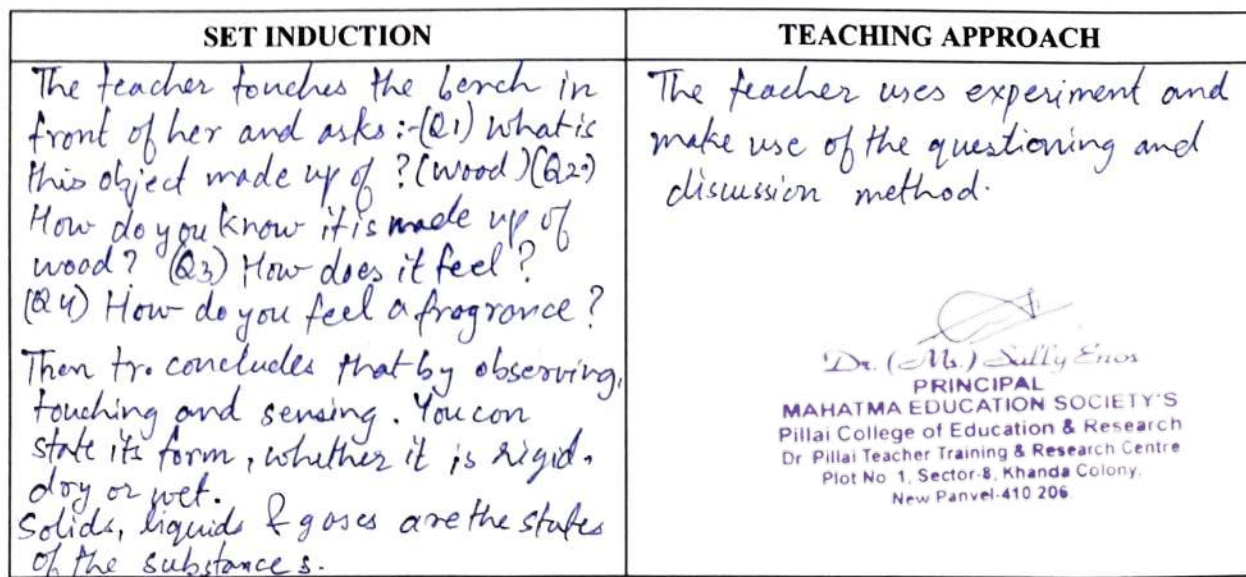 SET INDUCTION
The teacher touches the bench in
front of her and asks :-(Q1) what is
this object made up of ? (wood) (Q2.)
How do you know it is made up of
wood? (Q3) How does it feel ?
(Q4) How do you feel a fragrance ?
Then tr. concludes that by observing,
touching and sensing. You can
state its form, whether it is rigid.
dry or wet.
Solids, liquids & gases are the states
of the substances.
TEACHING APPROACH
The teacher uses experiment and
make use of the questioning and
discussion method.
Dr. (Ms.) Sally Enos
PRINCIPAL
MAHATMA EDUCATION SOCIETY'S
Pillai College of Education & Research
Dr Pillai Teacher Training & Research Centre
Plot No 1, Sector-8, Khanda Colony,
New Panvel-410 206